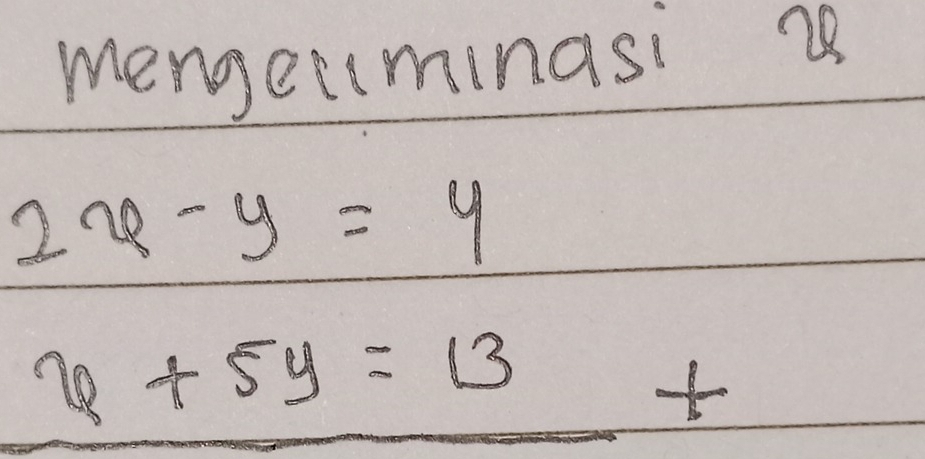 mengeliminasi x
2x - y = 4
x + 5y = 13 +